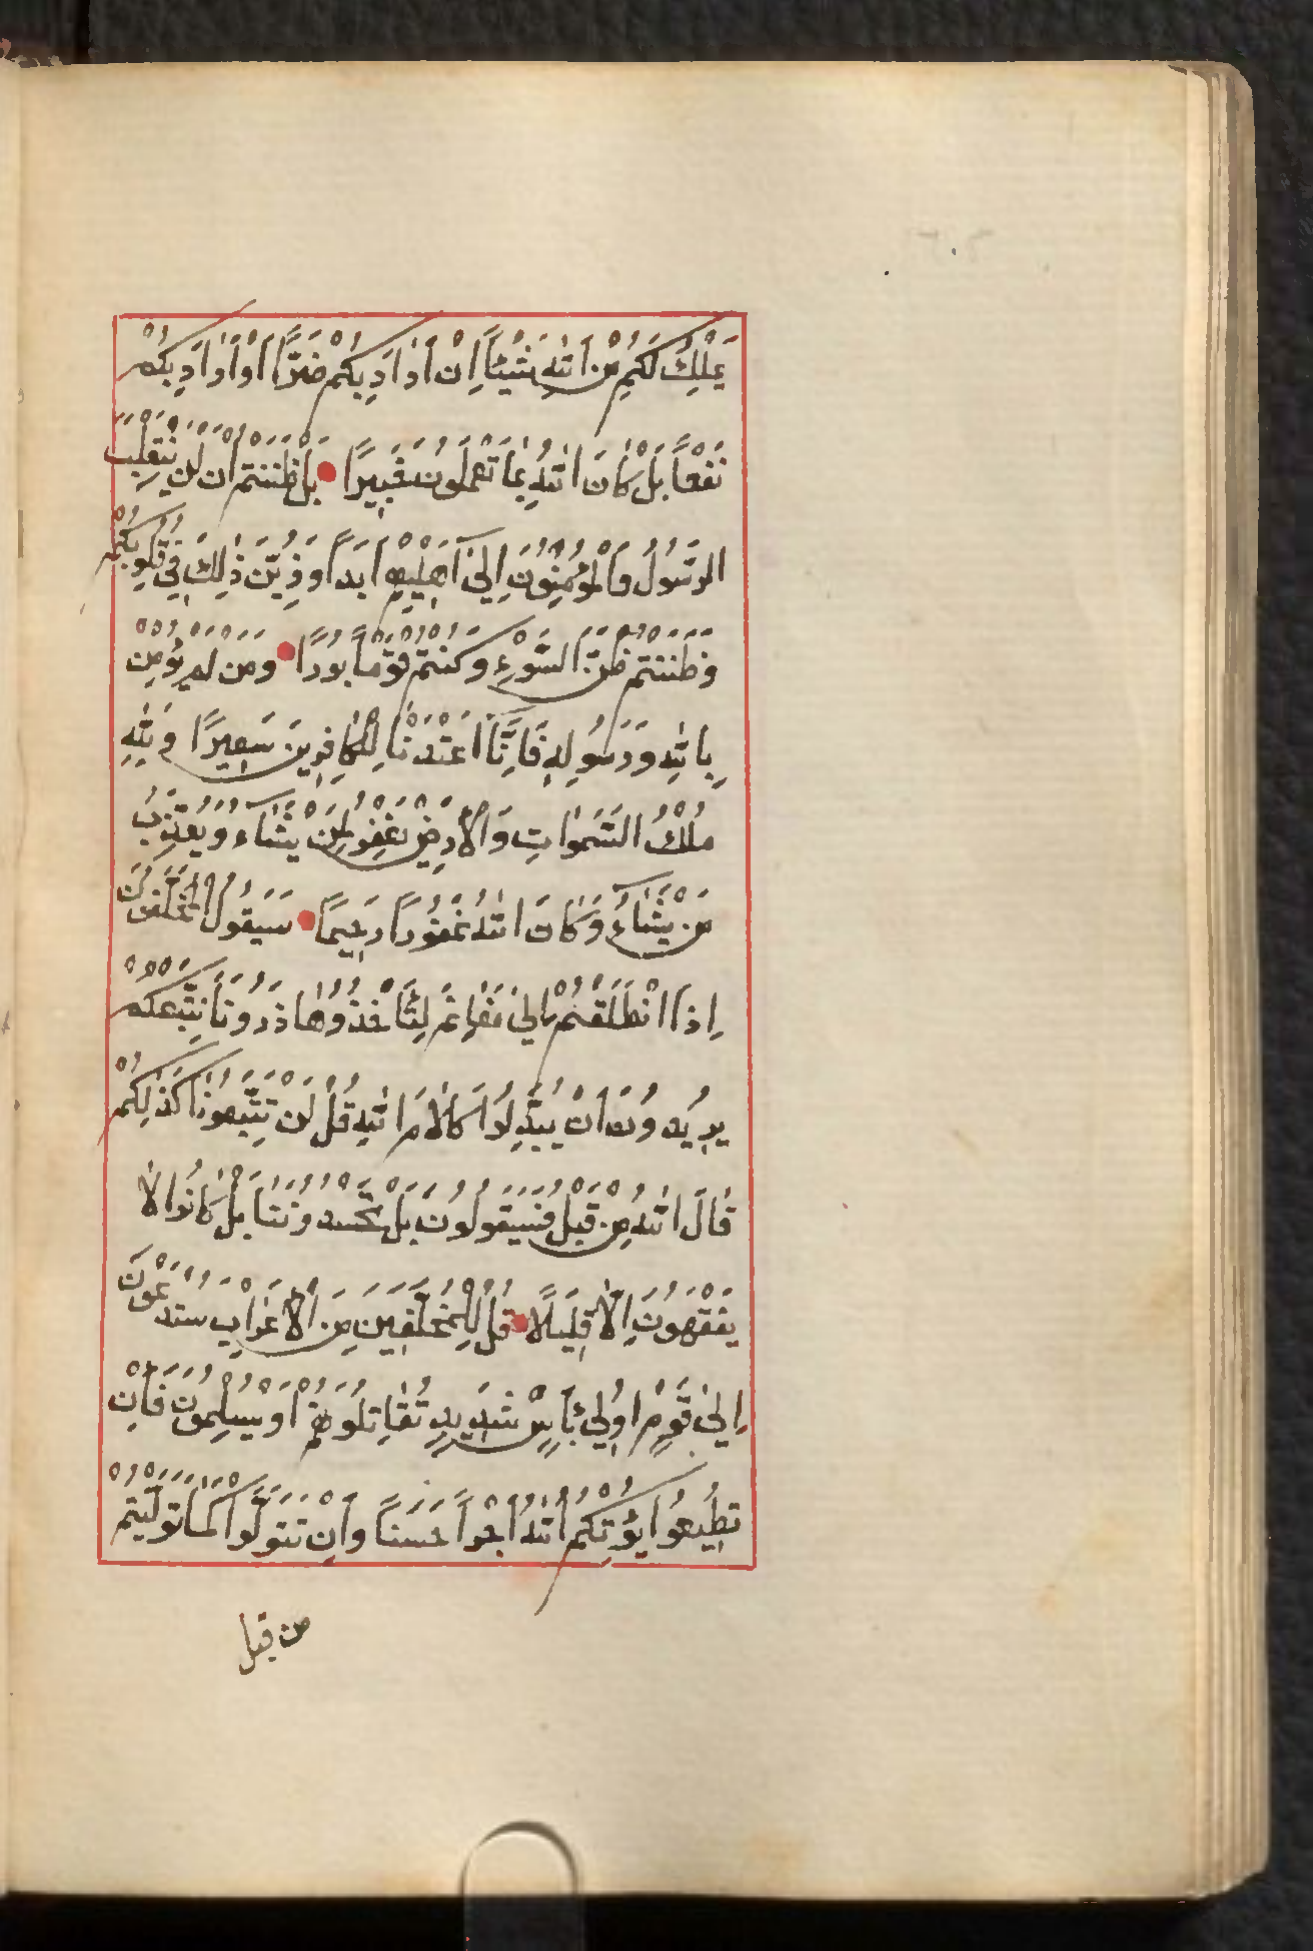 يَمْلِكُ لَكُمْ مِنَ اللّٰهِ شَيْئًا اِنْ اَرَادَ بِكُمْ ضَرًّا اَوْ اَرَادَ بِكُمْ
نَفْعًا بَلْ كَانَ اللّٰهُ بِمَا تَعْمَلُونَ خَبِيرًا بَلْ ظَنَنْتُمْ اَنْ لَنْ يَنْقَلِبَ
الرَّسُولُ وَالْمُؤْمِنُونَ اِلٰى اَهْلِيهِمْ اَبَدًا وَزُيِّنَ ذٰلِكَ فِي قُلُوبِكُمْ
وَظَنَنْتُمْ ظَنَّ السَّوْءِ وَكُنْتُمْ قَوْمًا بُورًا وَمَنْ لَمْ يُؤْمِنْ
بِاللّٰهِ وَرَسُولِهِ فَاِنَّا اَعْتَدْنَا لِلْكَافِرِينَ سَعِيرًا وَلِلّٰهِ
مُلْكُ السَّمٰوَاتِ وَالْاَرْضِ يَغْفِرُ لِمَنْ يَشَاءُ وَيُعَذِّبُ
مَنْ يَشَاءُ وَكَانَ اللّٰهُ غَفُورًا رَحِيمًا سَيَقُولُ الْمُخَلَّفُونَ
اِذَا انْطَلَقْتُمْ اِلٰى مَغَانِمَ لِتَأْخُذُوهَا ذَرُونَا نَتَّبِعْكُمْ
يُرِيدُونَ اَنْ يُبَدِّلُوا كَلَامَ اللّٰهِ قُلْ لَنْ تَتَّبِعُونَا كَذٰلِكُمْ
قَالَ اللّٰهُ مِنْ قَبْلُ فَسَيَقُولُونَ بَلْ تَحْسُدُونَنَا بَلْ كَانُوا لَا
يَفْقَهُونَ اِلَّا قَلِيلًا قُلْ لِلْمُخَلَّفِينَ مِنَ الْاَعْرَابِ سَتُدْعَوْنَ
اِلٰى قَوْمٍ اُولِي بَأْسٍ شَدِيدٍ تُقَاتِلُونَهُمْ اَوْ يُسْلِمُونَ فَاِنْ
تُطِيعُوا يُؤْتِكُمُ اللّٰهُ اَجْرًا حَسَنًا وَاِنْ تَتَوَلَّوْا كَمَا تَوَلَّيْتُمْ
من قبل